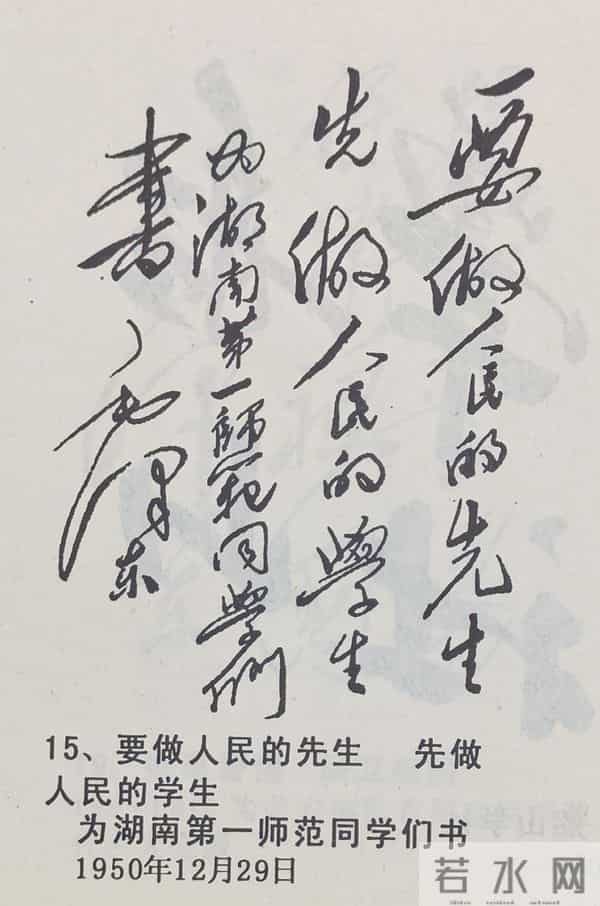 要做人民的先生
先做人民的學生
为湖南第一師範同學們
書
毛泽东
15、要做人民的先生 先做
人民的学生
为湖南第一师范同学们书
1950年12月29日
若水网